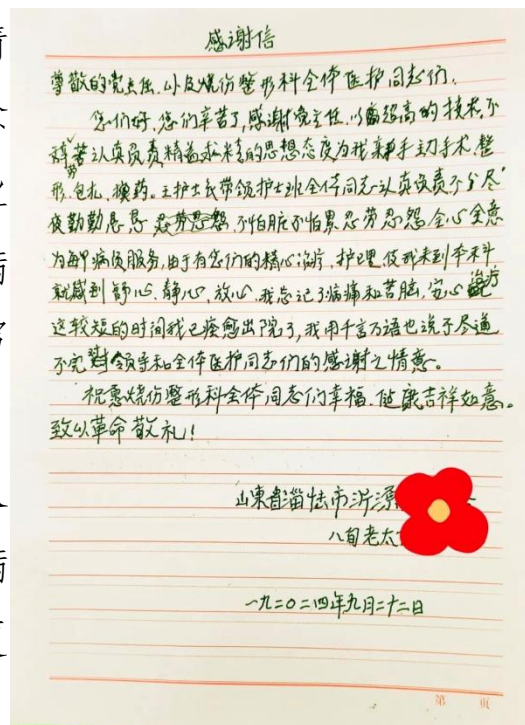 感谢信
尊敬的党主任,以及烧伤整形科全体医护同志们,
您们好,您们辛苦了,感谢党主任,以高超高的技术,不
辞劳苦认真负责精益求精的思想态度为我亲手主刀手术,整
形、包扎、换药。王护士长带领护士班全体同志认真负责不分昼
夜勤勤恳恳 忍劳忍怨,不怕脏不怕累忍劳忍怨全心全意
为每个病员服务,由于有您们的精心治疗,护理使我来到本科
就感到舒心,静心,放心,我忘记了病痛和苦脑,安心治疗
这较短的时间我已痊愈出院了,我用千言万语也说不尽道
不完对领导和全体医护同志们的感谢之情意。
祝愿烧伤整形科全体同志们幸福,健康吉祥如意。
致以革命敬礼!
山东省淄博市沂源
八旬老太
一九二0二四年九月二十二日
第 页